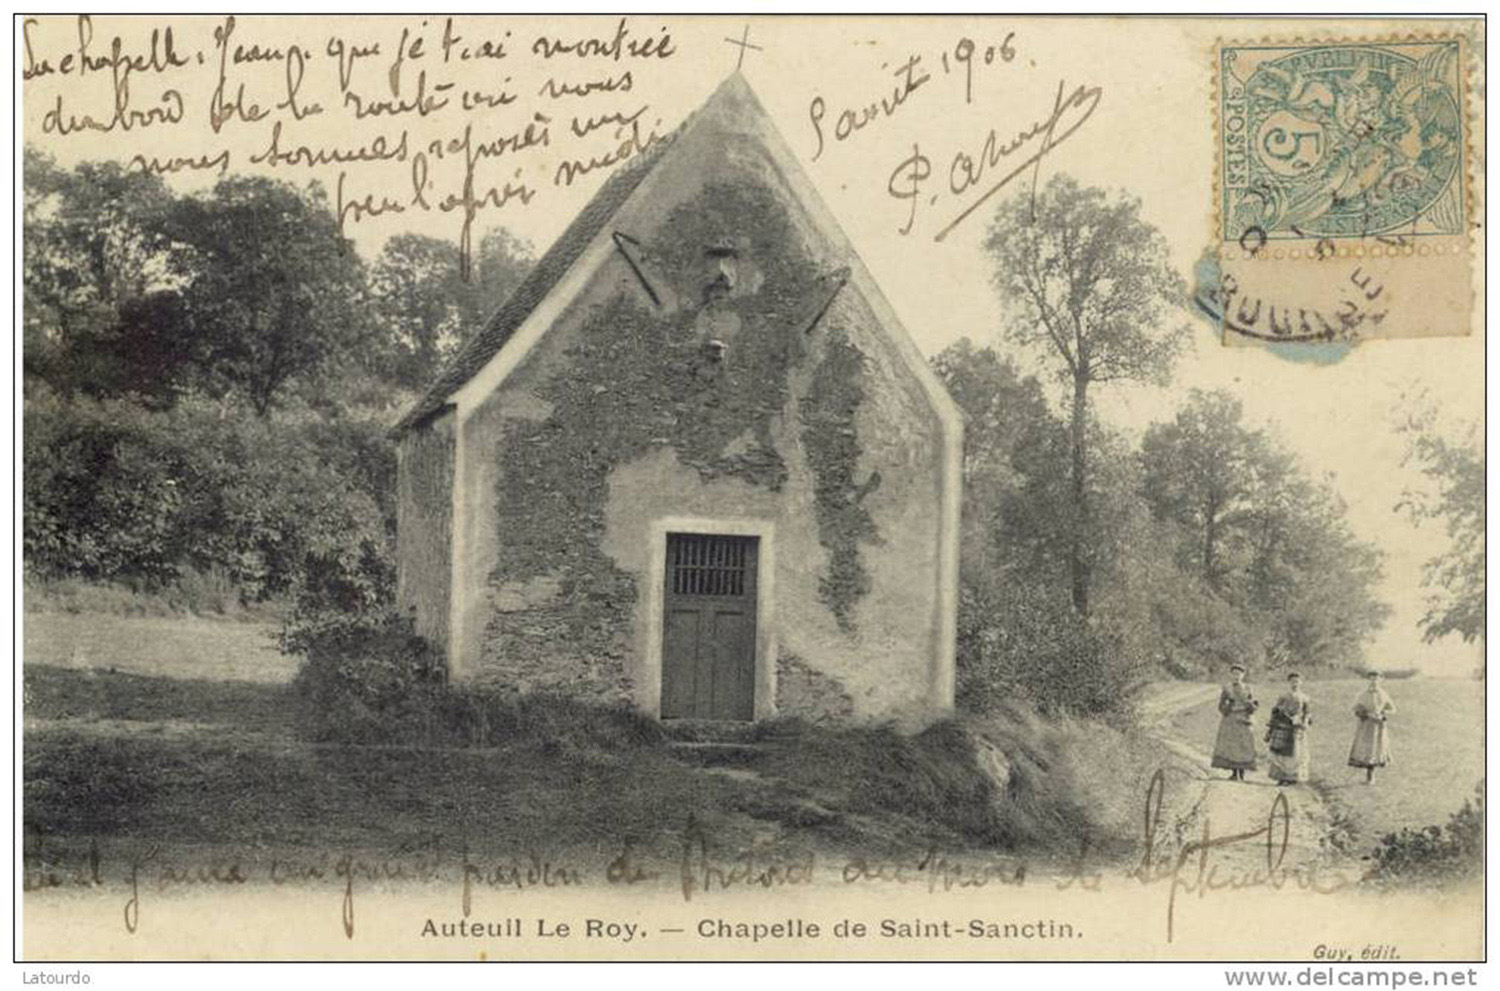 La chapelle, Jeanne que je t'ai montrée
du bord de la route où nous
nous sommes reposés un
peu l'après midi
5 août 1906.
P.
RÉPUBLIQUE
5c
POSTES
pardon de au mois de Septembre
Auteuil Le Roy. — Chapelle de Saint-Sanctin.
Guy, édit.
Latourdo
www.delcampe.net